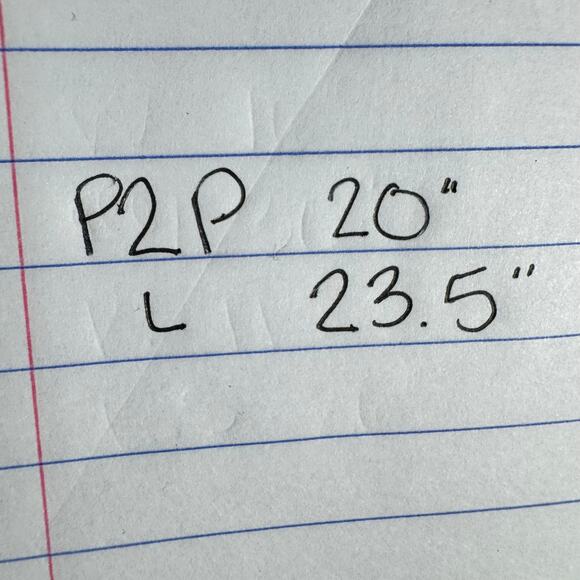 P2P 20"
L 23.5"